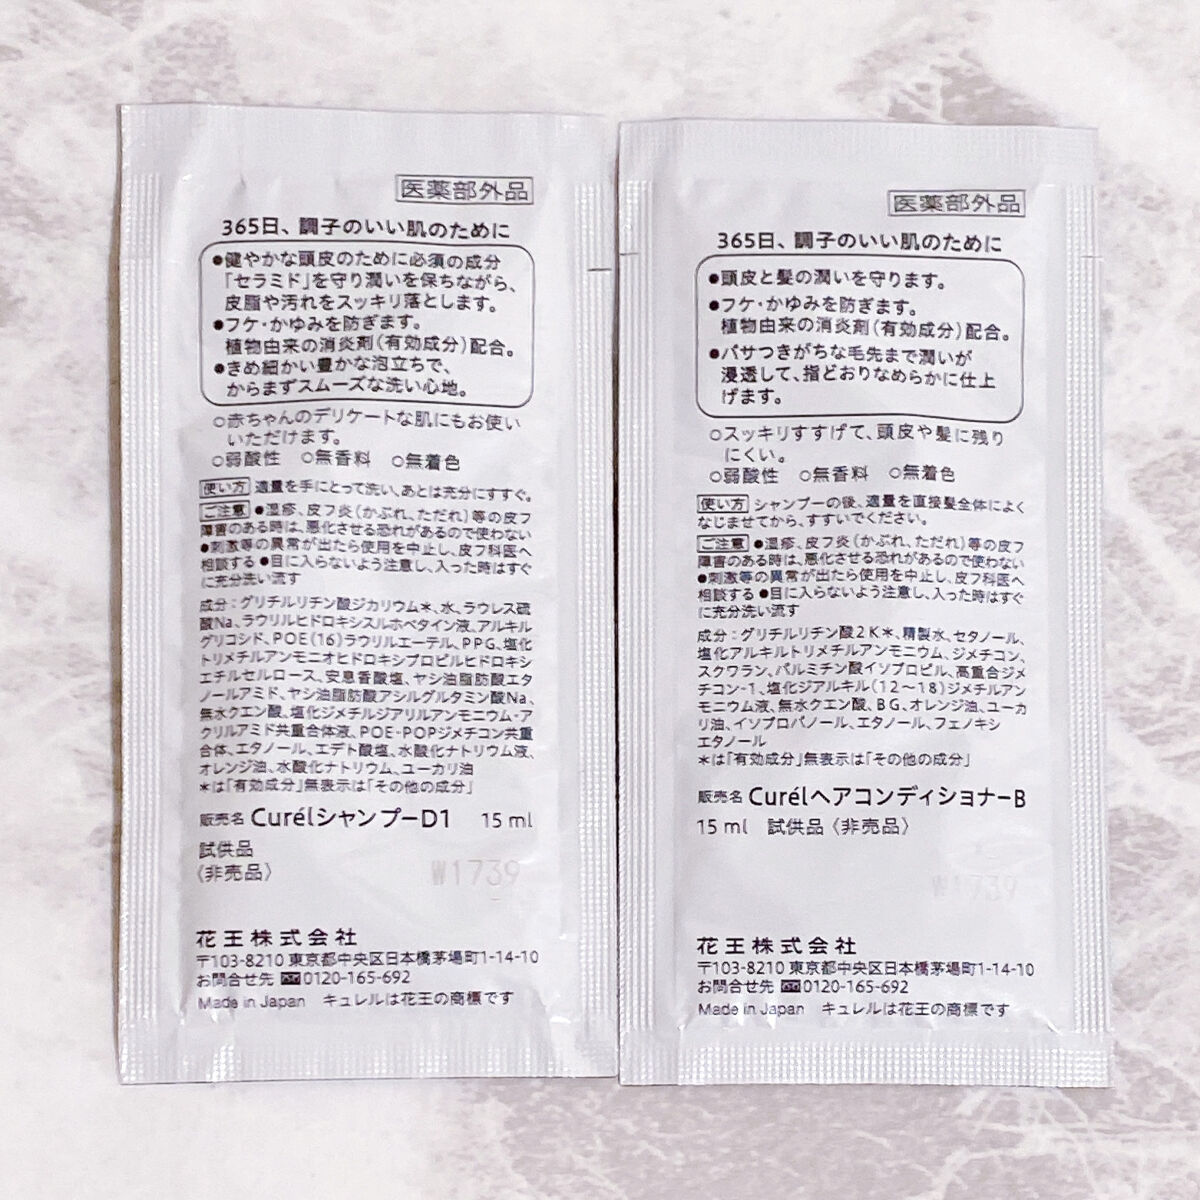 医薬部外品
365日、調子のいい肌のために
●健やかな頭皮のために必須の成分
「セラミド」を守り潤いを保ちながら、
皮脂や汚れをスッキリ落とします。
●フケ・かゆみを防ぎます。
植物由来の消炎剤(有効成分)配合。
●きめ細かい豊かな泡立ちで、
からまずスムーズな洗い心地。
○赤ちゃんのデリケートな肌にもお使い
いただけます。
○弱酸性 ○無香料 ○無着色
使い方 適量を手にとって洗い、あとは充分にすすぐ。
ご注意 ●湿疹、皮フ炎(かぶれ、ただれ)等の皮フ
障害のある時は、悪化させる恐れがあるので使わない
●刺激等の異常が出たら使用を中止し、皮フ科医へ
相談する ●目に入らないよう注意し、入った時はすぐ
に充分洗い流す
成分:グリチルリチン酸ジカリウム*、水、ラウレス硫
酸Na、ラウリルヒドロキシスルホベタイン液、アルキル
グリコシド、POE(16)ラウリルエーテル、PPG、塩化
トリメチルアンモニオヒドロキシプロピルヒドロキシ
エチルセルロース、安息香酸塩、ヤシ油脂肪酸エタ
ノールアミド、ヤシ油脂肪酸アシルグルタミン酸Na、
無水クエン酸、塩化ジメチルジアリルアンモニウム・ア
クリルアミド共重合体液、POE・POPジメチコン共重
合体、エタノール、エデト酸塩、水酸化ナトリウム液、
オレンジ油、水酸化ナトリウム、ユーカリ油
*は「有効成分」無表示は「その他の成分」
販売名 CurélシャンプーD1 15ml
試供品
〈非売品〉
W1739
花王株式会社
〒103-8210 東京都中央区日本橋茅場町1-14-10
お問合せ先 0120-165-692
Made in Japan キュレルは花王の商標です
医薬部外品
365日、調子のいい肌のために
●頭皮と髪の潤いを守ります。
●フケ・かゆみを防ぎます。
植物由来の消炎剤(有効成分)配合。
●パサつきがちな毛先まで潤いが
浸透して、指どおりなめらかに仕上
げます。
○スッキリすすげて、頭皮や髪に残り
にくい。
○弱酸性 ○無香料 ○無着色
使い方 シャンプーの後、適量を直接髪全体によく
なじませてから、すすいでください。
ご注意 ●湿疹、皮フ炎(かぶれ、ただれ)等の皮フ
障害のある時は、悪化させる恐れがあるので使わない
●刺激等の異常が出たら使用を中止し、皮フ科医へ
相談する ●目に入らないよう注意し、入った時はすぐ
に充分洗い流す
成分:グリチルリチン酸2K*、精製水、セタノール、
塩化アルキルトリメチルアンモニウム、ジメチコン、
スクワラン、パルミチン酸イソプロピル、高重合ジメ
チコン-1、塩化ジアルキル(12〜18)ジメチルアン
モニウム液、無水クエン酸、BG、オレンジ油、ユーカ
リ油、イソプロパノール、エタノール、フェノキシ
エタノール
*は「有効成分」無表示は「その他の成分」
販売名 CurélヘアコンディショナーB
15ml 試供品〈非売品〉
W1739
花王株式会社
〒103-8210 東京都中央区日本橋茅場町1-14-10
お問合せ先 0120-165-692
Made in Japan キュレルは花王の商標です